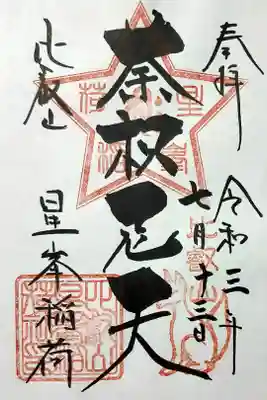 奉拝
令和三年
七月十三日
荼枳尼天
比叡山
星峯稲荷